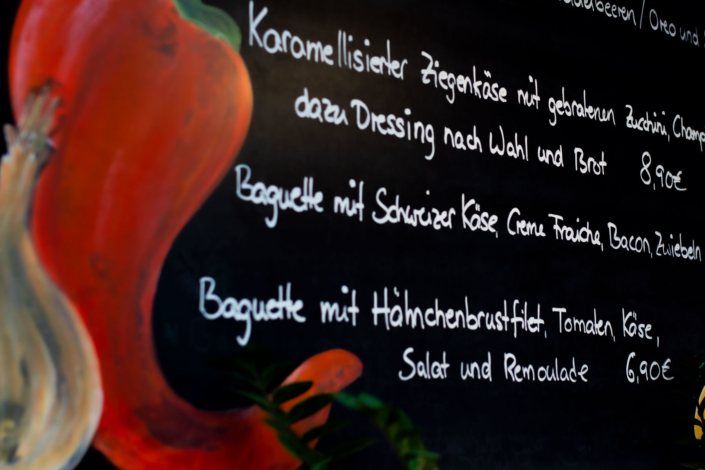 / Oreo und
Karamellisierter Ziegenkäse mit gebratenen Zucchini, Champ
dazu Dressing nach Wahl und Brot 8,90€
Baguette mit Schweizer Käse, Creme Fraiche, Bacon, Zwiebeln
Baguette mit Hähnchenbrustfilet, Tomaten, Käse,
Salat und Remoulade 6,90€